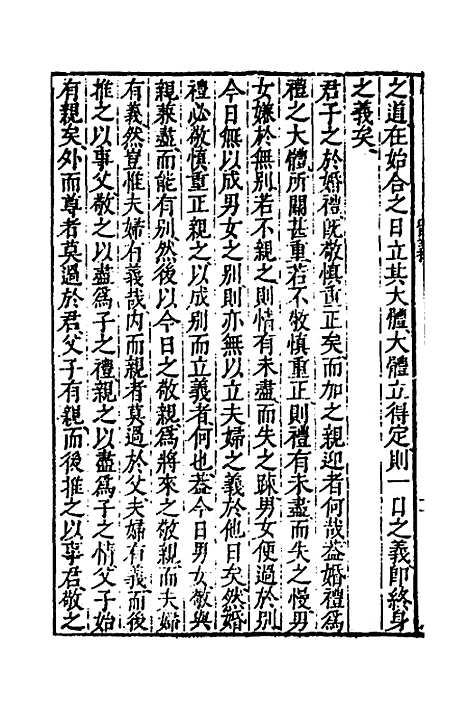 之道在始合之日立其大體大體立得定則一日之義即終身
之義矣
君子之於婚禮既敬慎重正矣而加之親迎者何哉蓋婚禮爲
禮之大體所關甚重若不敬慎重正則禮有未盡而失之慢男
女嫌於無別若不親之則情有未盡而失之疎男女便過於別
今日無以成男女之別則亦無以立夫婦之義於他日矣然婚
禮必敬慎重正親之以成別而立義者何也葢今日男女敬與
親兼盡而能有別然後以今日之敬親爲將來之敬親而夫婦
有義然豈惟夫婦有義哉内而親者莫過於父夫婦有義而後
推之以事父敬之以盡爲子之禮親之以盡爲子之情父子始
有親矣外而尊者莫過於君父子有親而後推之以事君敬之